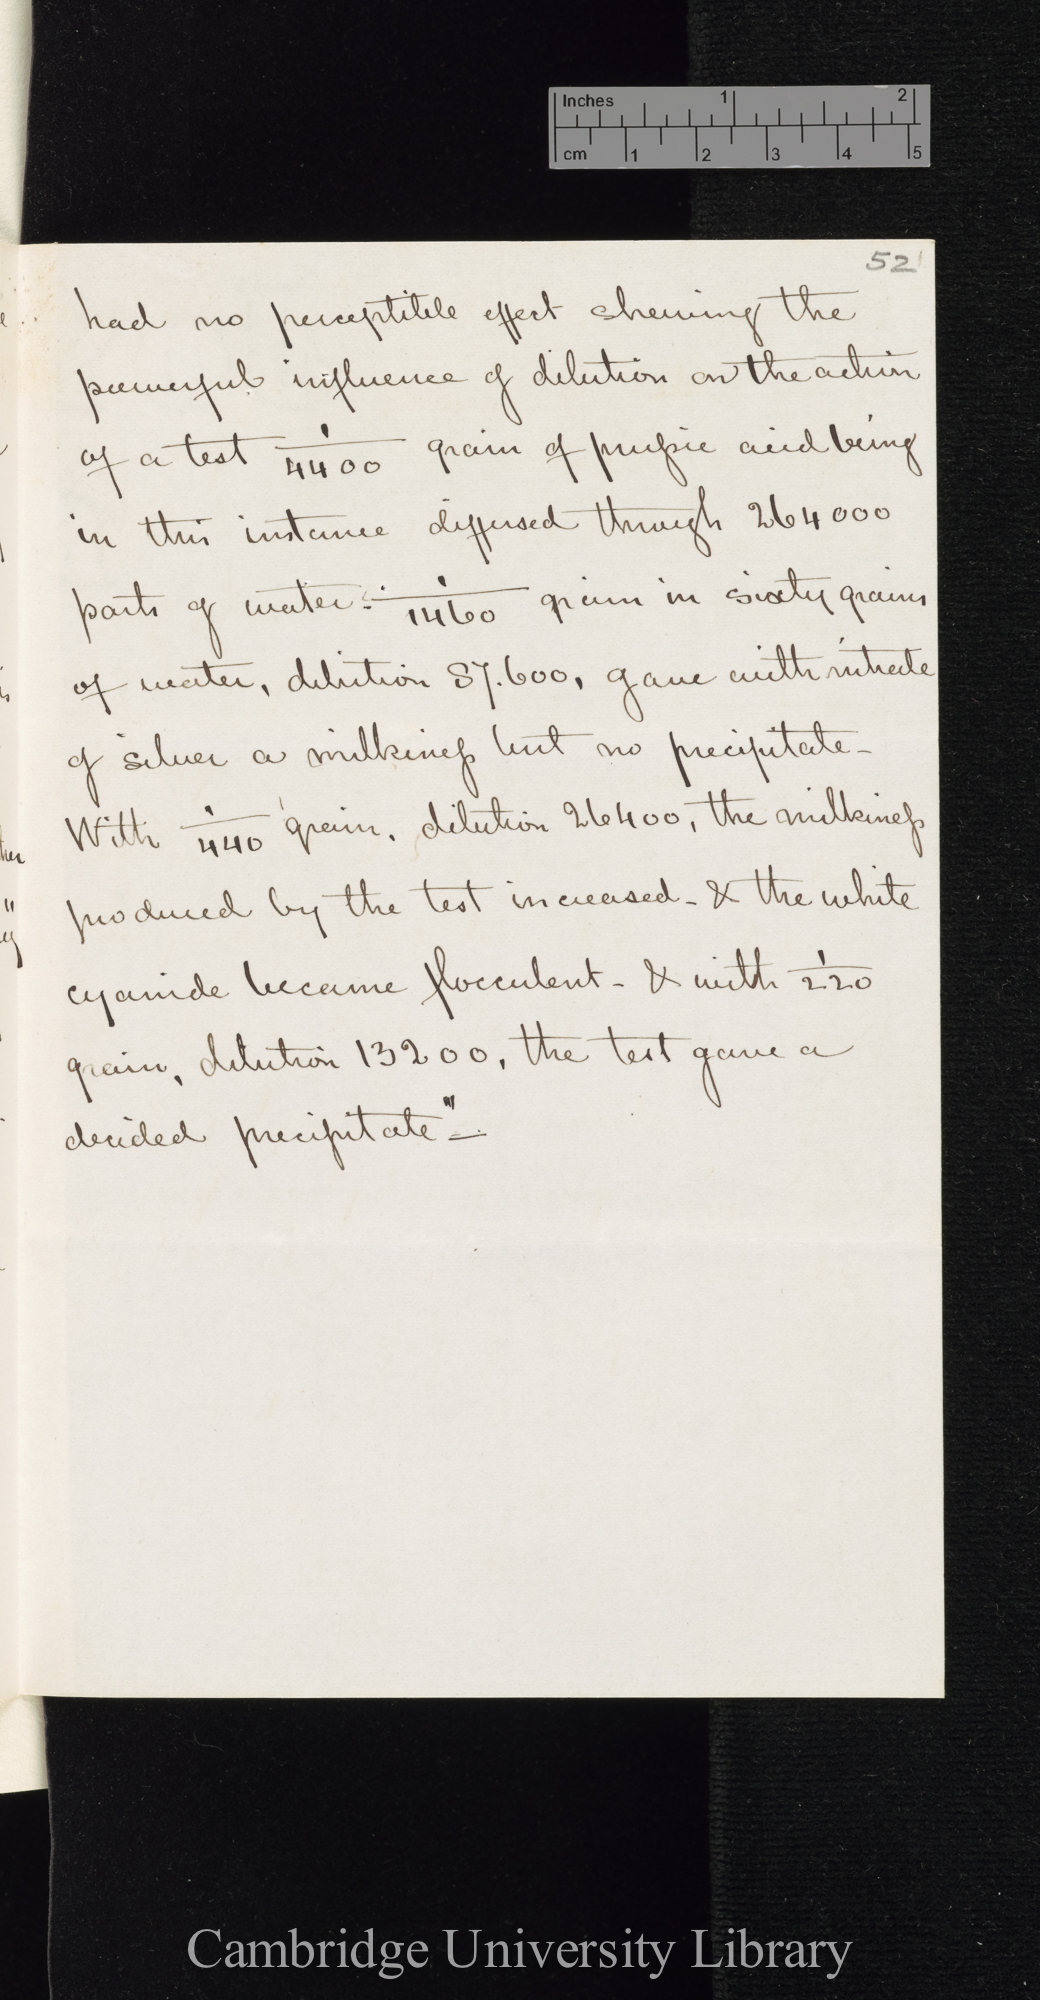 Inches 1 2
cm 1 2 3 4 5
52
had no perceptible effect shewing the
powerful influence of dilution on the action
of a test 1/4400 grain of prussic acid being
in this instance diffused through 264000
parts of water:- 1/1460 grain in sixty grains
of water, dilution 87.600, gave with nitrate
of silver a milkiness but no precipitate -
With 1/440 grain, dilution 26400, the milkiness
produced by the test increased - & the white
cyanide became flocculent - & with 1/220
grain, dilution 13200, the test gave a
decided precipitate" -
Cambridge University Library